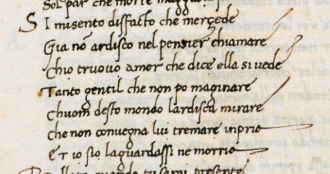 Sol par che morte
S i misento disfatto che mercede
Gia no ardisco nel pensier chiamare
Chio truovo amor che dice ella si vede
Tanto gentil che non po maginare
Chuom desto mondo lardisca mirare
che non convegna lui tremare inpria
Et io sio laguardassi ne morria